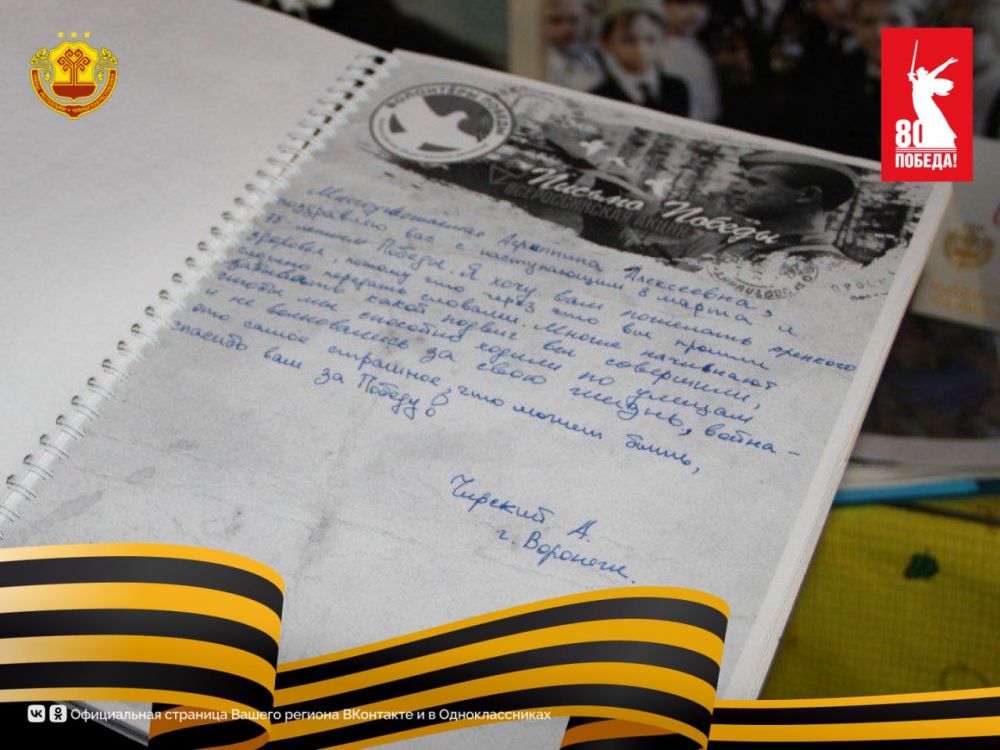 ВОЛОНТЁРЫ ПОБЕДЫ
Письмо Победы
ВСЕРОССИЙСКАЯ АКЦИЯ
80
ПОБЕДА!
Многоуважаемая Агриппина Алексеевна,
поздравляю вас с наступающим 8 марта и
75 летием Победы. Я хочу вам пожелать крепкого
здоровья, потому что через что вы прошли
сложно передать словами. Многие начинают
забывать какой подвиг вы совершили,
чтобы мы спокойно ходили по улицам
и не волновались за свою жизнь, война –
это самое страшное, что может быть,
спасибо вам за Победу!
Чирский А.
г. Воронеж.
Официальная страница Вашего региона ВКонтакте и в Одноклассниках